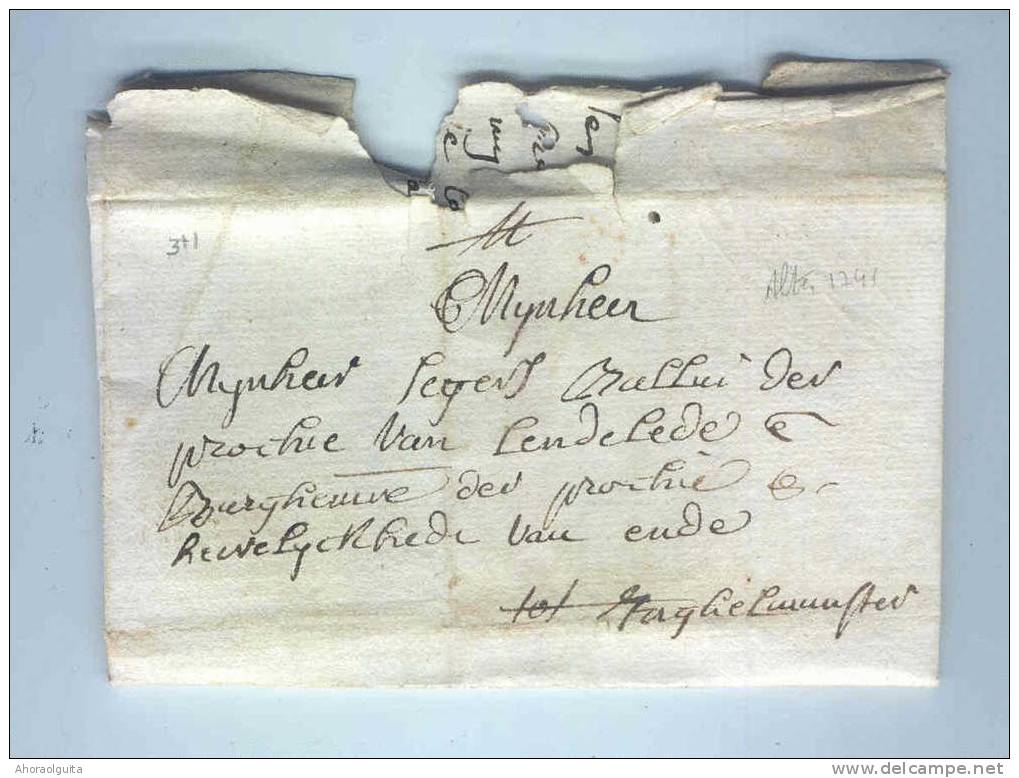 ley
3+1
Alter 1741
Mynheer
Mynheer Segers Balliu der
prochie van lendelede e
Burghemre der prochie e
heerelyckhede van ende
tot Inghelmunster
Ahoraolguita
www.delcampe.net